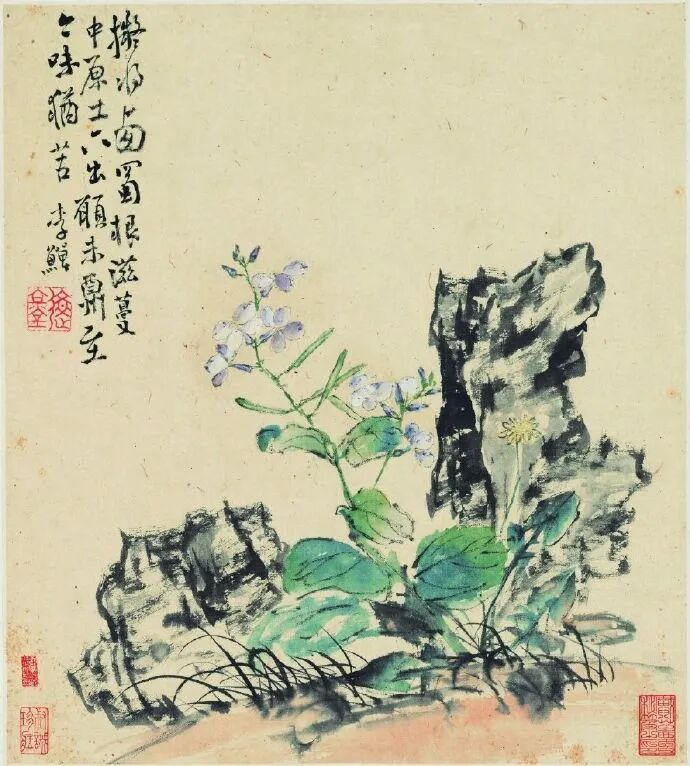 擬将西蜀根滋蔓
中原土六出願未酬至
今味猶苦 李鱓